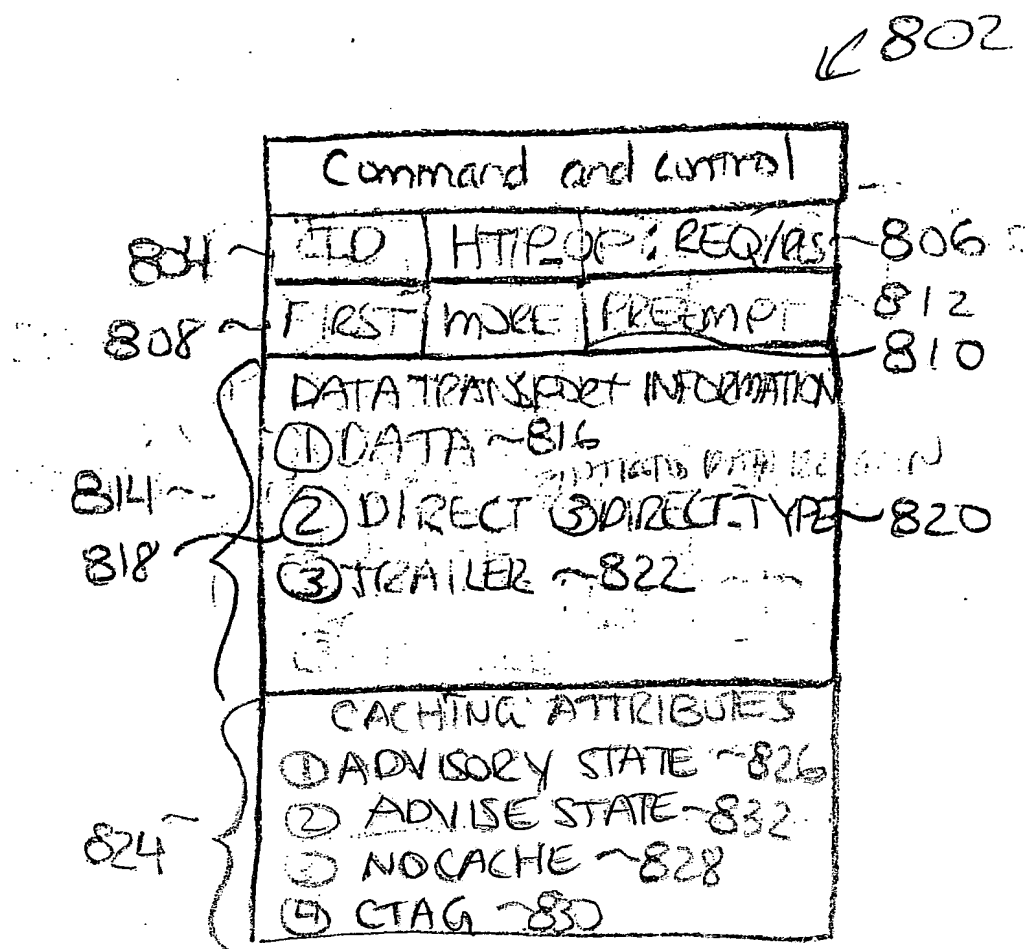 802
Command and control
804 CID HTTP_OP: REQ/RS 806
808 FIRST MORE PREEMPT 812
810
DATA TRANSPORT INFORMATION
① DATA ~816
814
② DIRECT ③ DIRECT-TYPE ~820
818
③ TRAILER ~822
CACHING ATTRIBUTES
① ADVISORY STATE ~826
② ADVISE STATE ~832
824
③ NOCACHE ~828
④ CTAG ~830